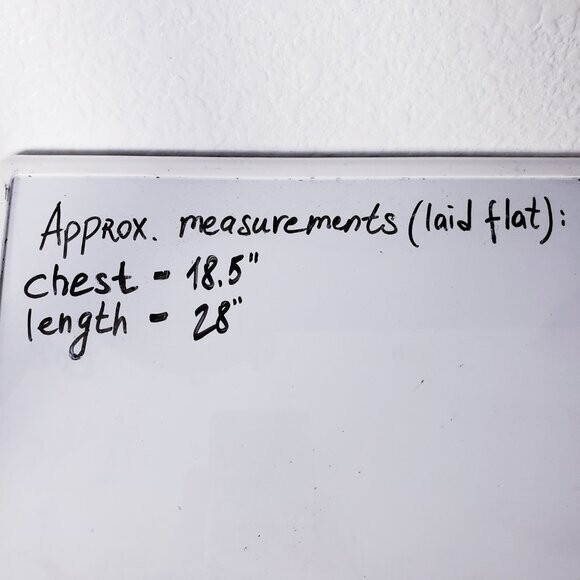 Approx. measurements (laid flat):
chest - 18.5"
length - 28"